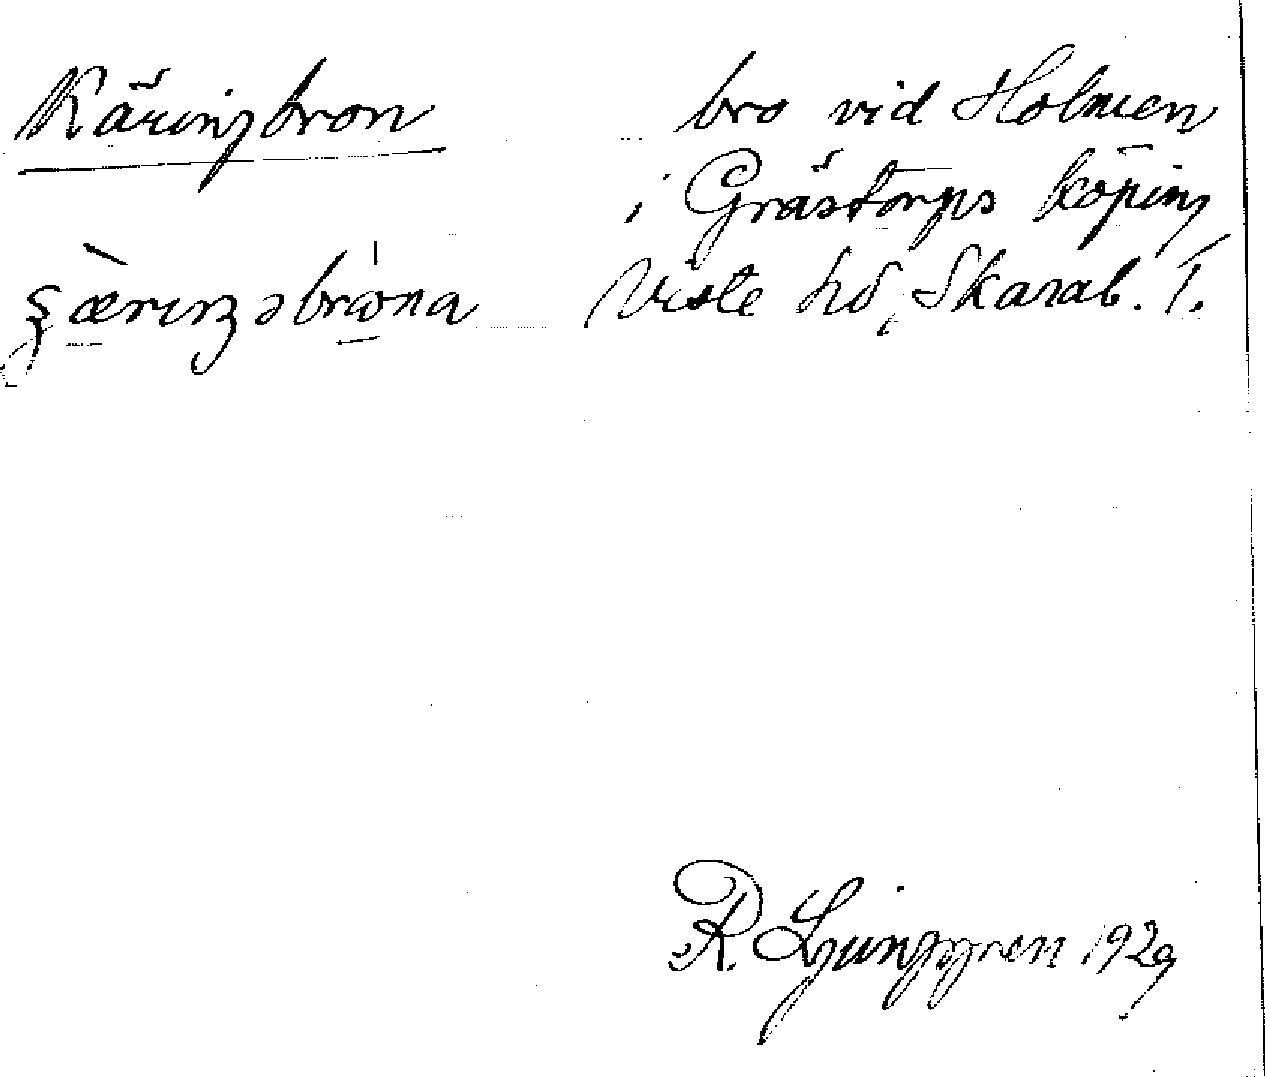 Käringbron
bro vid Holmen
i Grästorps köping
Viste hd, Skarab. l.
R. Ljunggren 1929